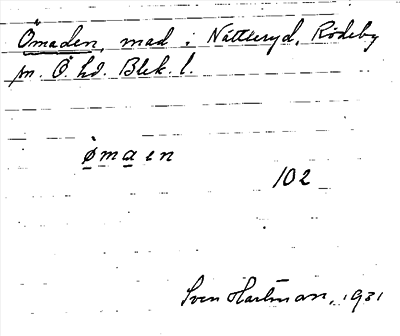 Ömaden, mad i Nättraryd, Rödeby
sn. Ö. hd. Blek. l.
ømaen
102
Sven Hartman, 1931